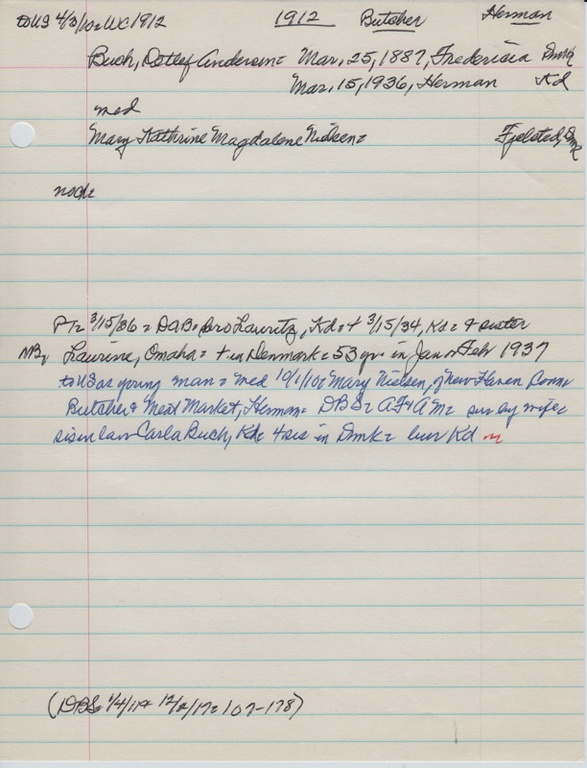 to US 4/3/10 = WC 1912 1912 Butcher Herman
Buch, Detlef Andersen = Mar, 25, 1887, Fredericia Dmk
Mar, 15, 1936, Herman Kd
med
Mary Kathrine Magdalene Nielsen = Fjelsted, Dmk
noch =
PT = 3/15/36 = DAB = bro Lauritz, Kd = + 3/15/34, Kd = & sister
Laurine, Omaha = + in Denmark = 53 yrs in Jan or Feb 1937
to US as young man = med 10/1/10 = Mary Nielsen, of New Haven Conn
Butcher & Meat Market, Herman = DBS = AF & AM = sur by wife =
sis in law Carla Buch, Kd = 4 sis in Dmk = bur Kd
(DBS = 1/4/11 & 12/2/17 = 107-178)